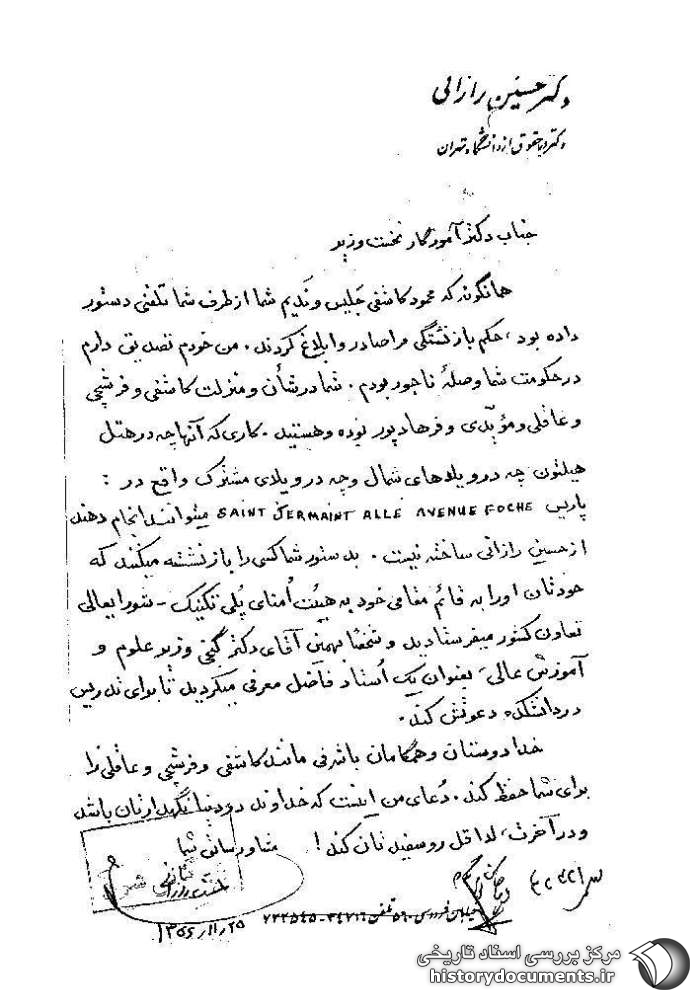 دکتر حسنین رازانی
دکتر در حقوق از دانشگاه تهران
جناب دکتر آموزگار نخست وزیر
همانگونه که محمود کاشفی جلیس و ندیم شما از طرف شما تلفنی دستور
داده بود، حکم بازنشستگی مرا صادر و ابلاغ کردند. من خودم تصدیق دارم
در حکومت شما وصلهٔ ناجور بودم. شما در شأن و منزلت کاشفی و فرشچی
و عاقلی و مؤیّدی و فرهادپور بوده و هستید. کاری که آنها چه در هتل
هیلتون چه در ویلاهای شمال و چه در ویلای مشترک واقع در :
پاریس SAINT JERMAINT ALLÉ AVENUE FOCHE میتوانند انجام دهند
از حسنین رازانی ساخته نیست. بدستور شما کسی را بازنشسته میکنند که
خودتان او را به قائم مقامی خود به هیئت اُمنای پلی تکنیک - شورایعالی
تعاون کشور میفرستادید و شخصاً بهمین آقای دکتر گنجی وزیر علوم و
آموزش عالی، بعنوان یک اُستاد فاضل معرفی میکردید تا برای تدریس
در دانشکده دعوتش کند.
خدا دوستان و همگامان باشرفی مانند کاشفی و فرشچی و عاقلی را
برای شما حفظ کند. دُعای من اینست که خداوند در دنیا نگهدارتان باشد
و در آخرت، لااقل روسفیدتان کند! مشاور سابق شما
رازانی
خیابان فردوسی ۵۹۰ تلفن ۳۴۷۱۶ - ۷۳۳۵۴۵
۱۳۵۶/۱۱/۲۵
مرکز بررسی اسناد تاریخی
historydocuments.ir